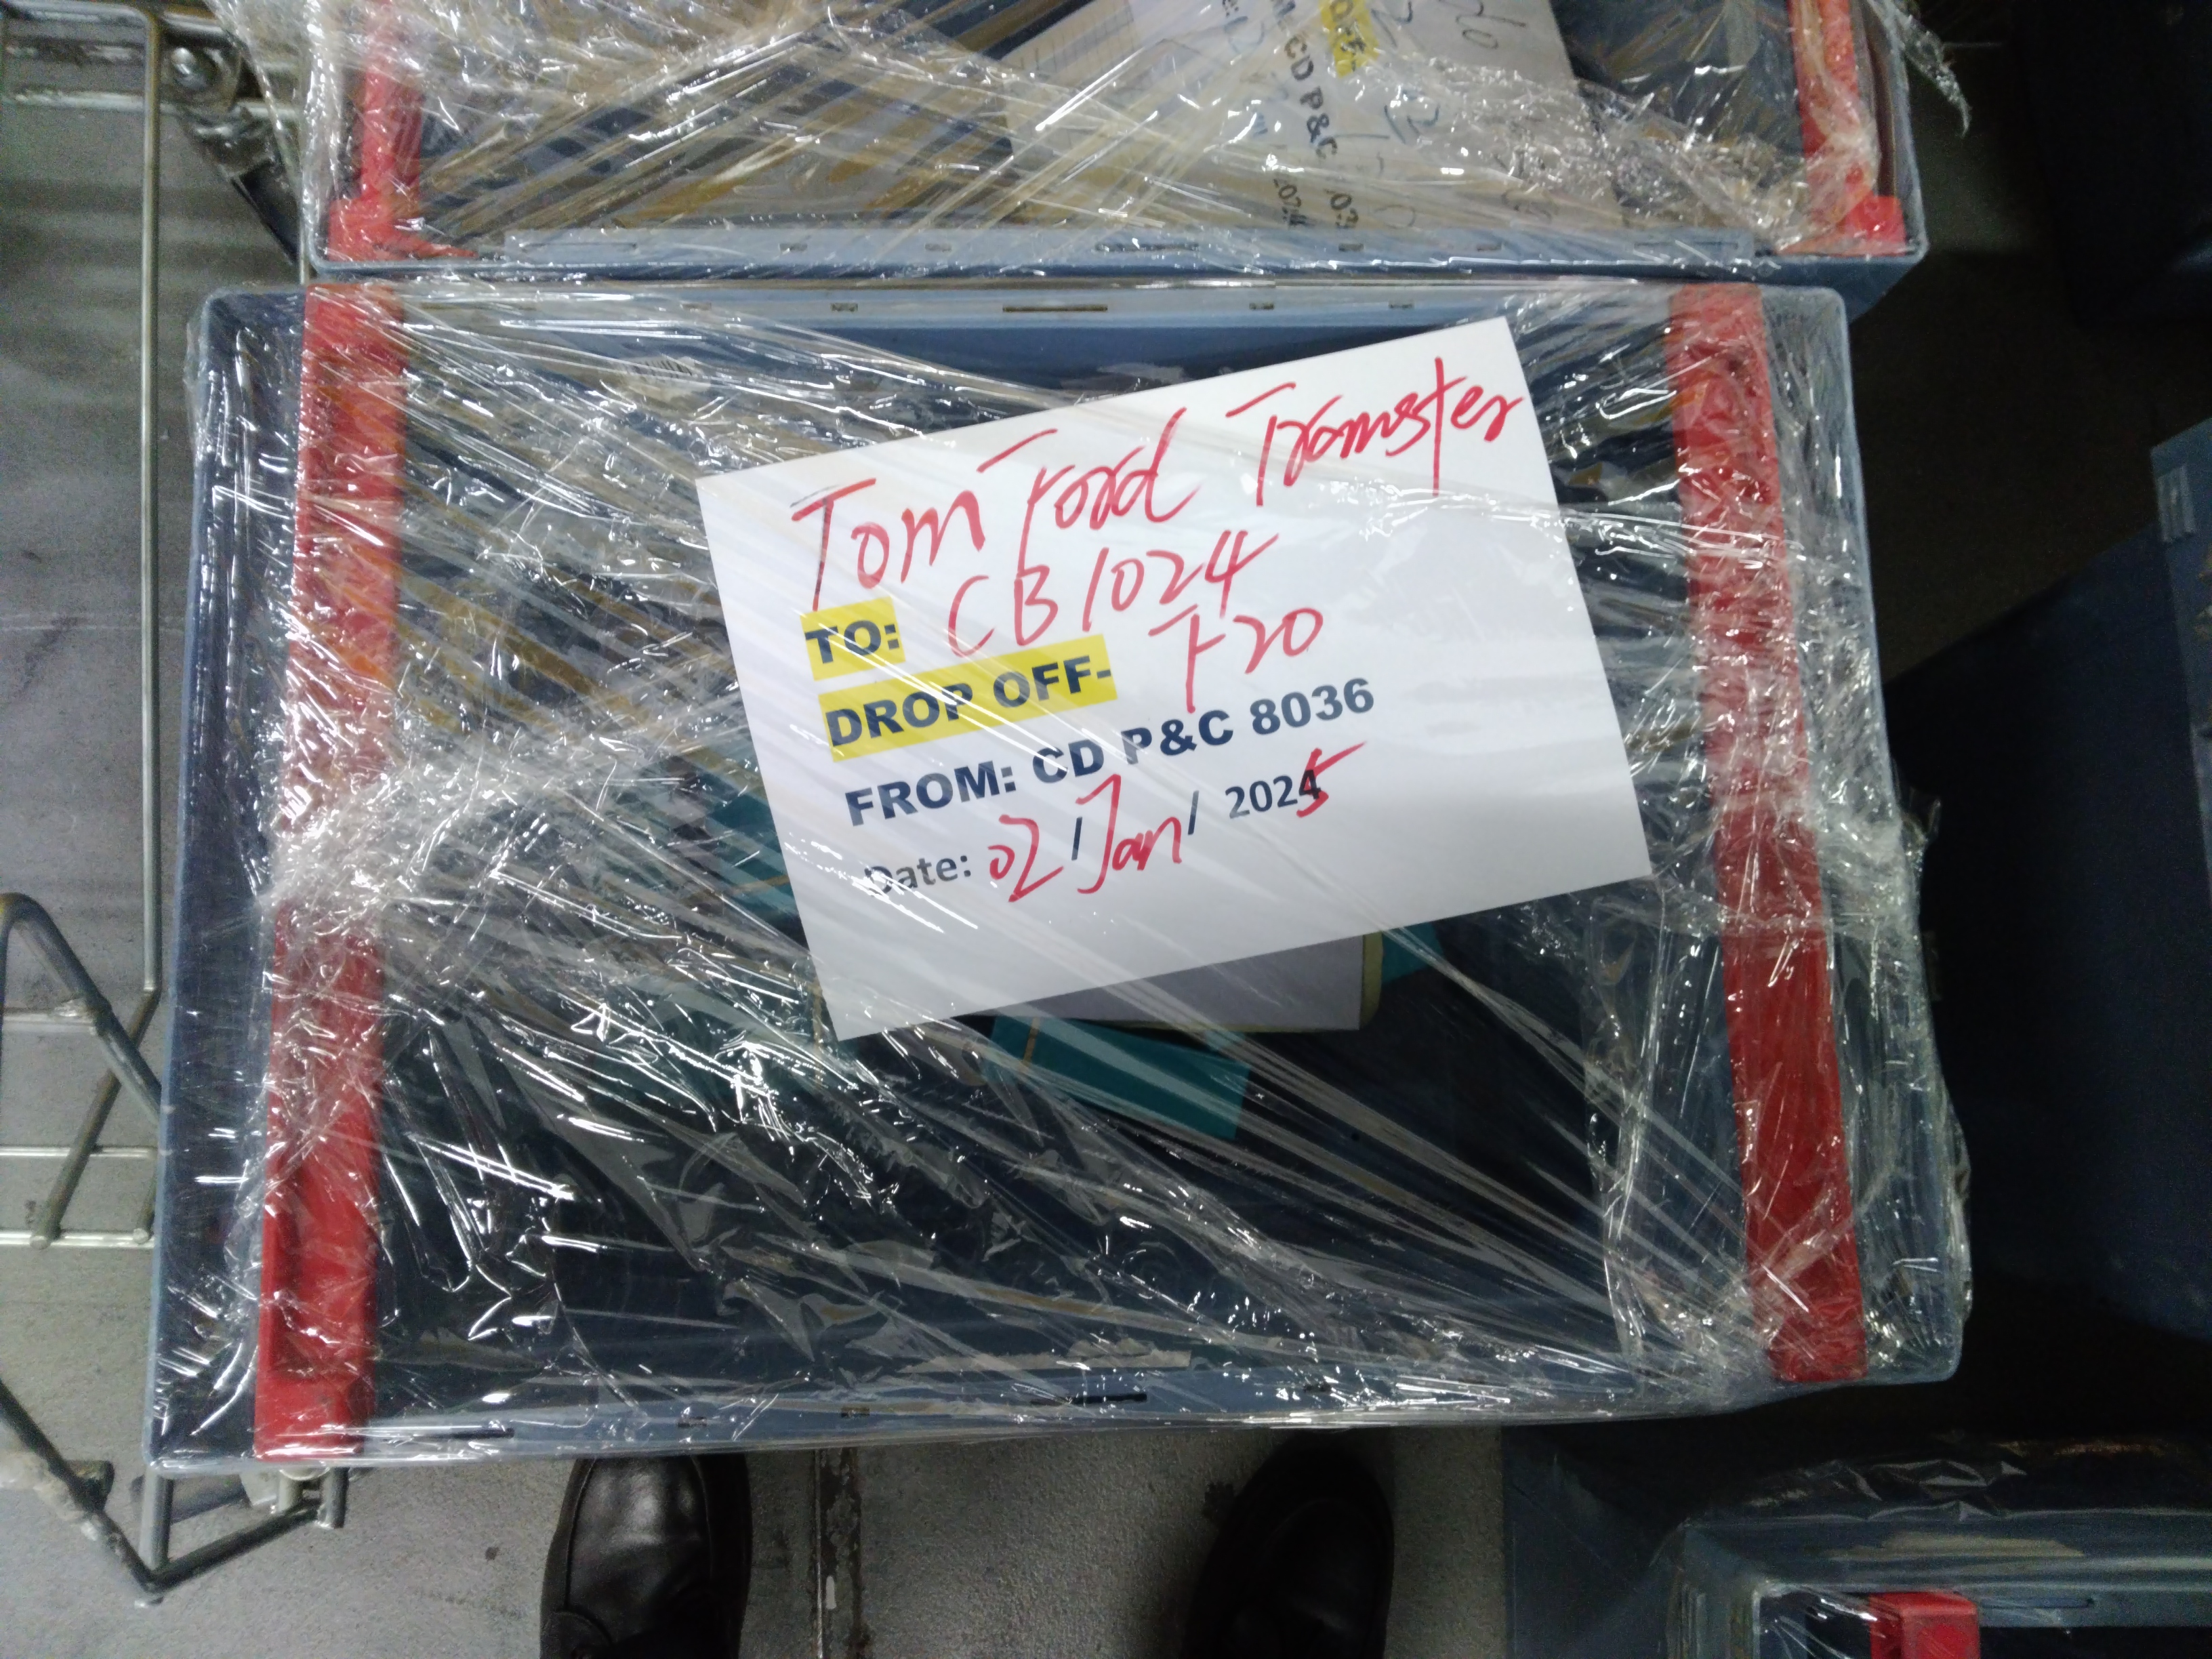 CD P&C
Tom Ford Transfer
TO: CB1024
DROP OFF- T20
FROM: CD P&C 8036
Date: 02 / Jan / 2025